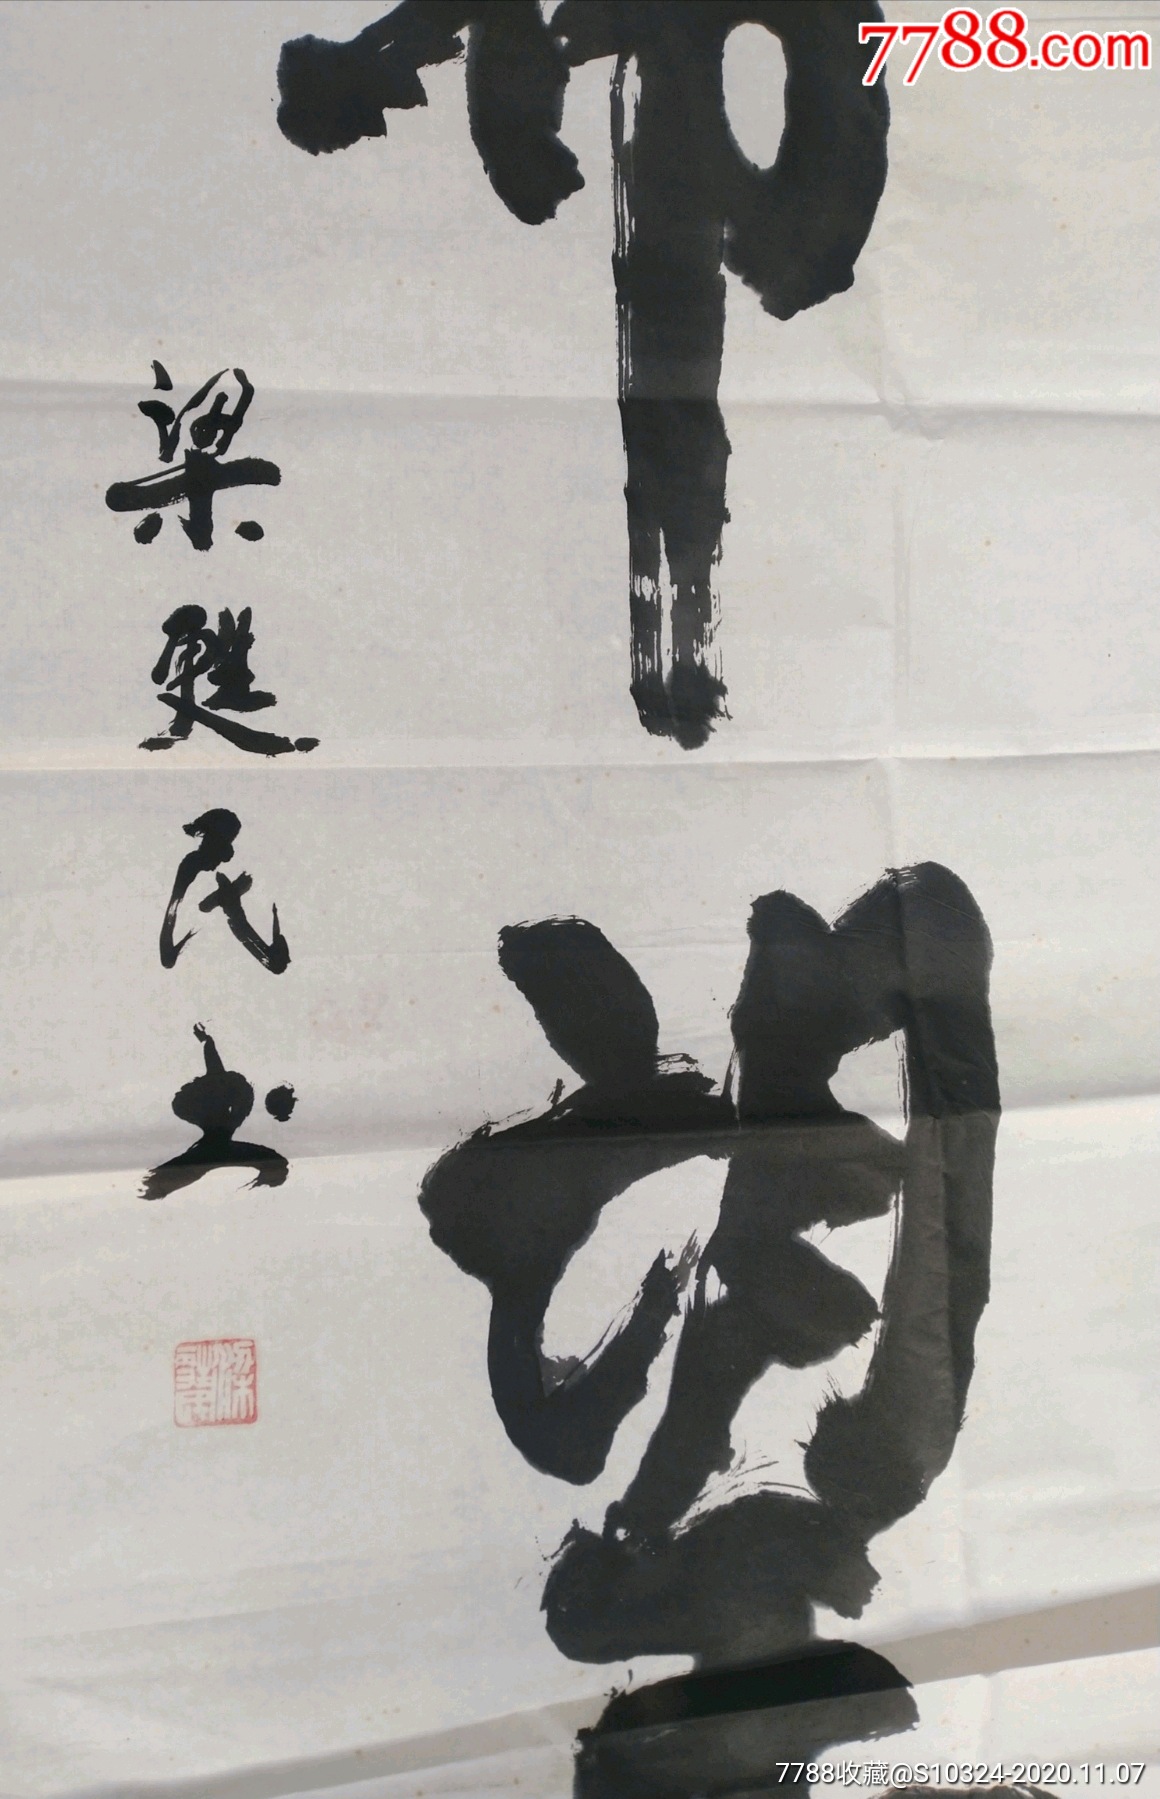 7788.com
希望
梁甦民书
7788收藏@S10324-2020.11.07